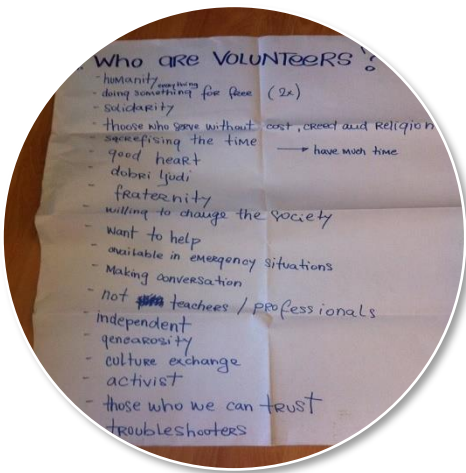 Who are VOLUNTEERS ?
- humanity
everything
- doing something for free (2x)
- solidarity
- thoose who serve without cost, creed and Religion
- sacrefising the time → have much time
- good heart
- dobri ljudi
- fraternity
- willing to change the society
- want to help
- available in emergency situations
- Making conversation
- not teachers / professionals
- independent
- genearosity
- culture exchange
- activist
- those who we can trust
- troubleshooters